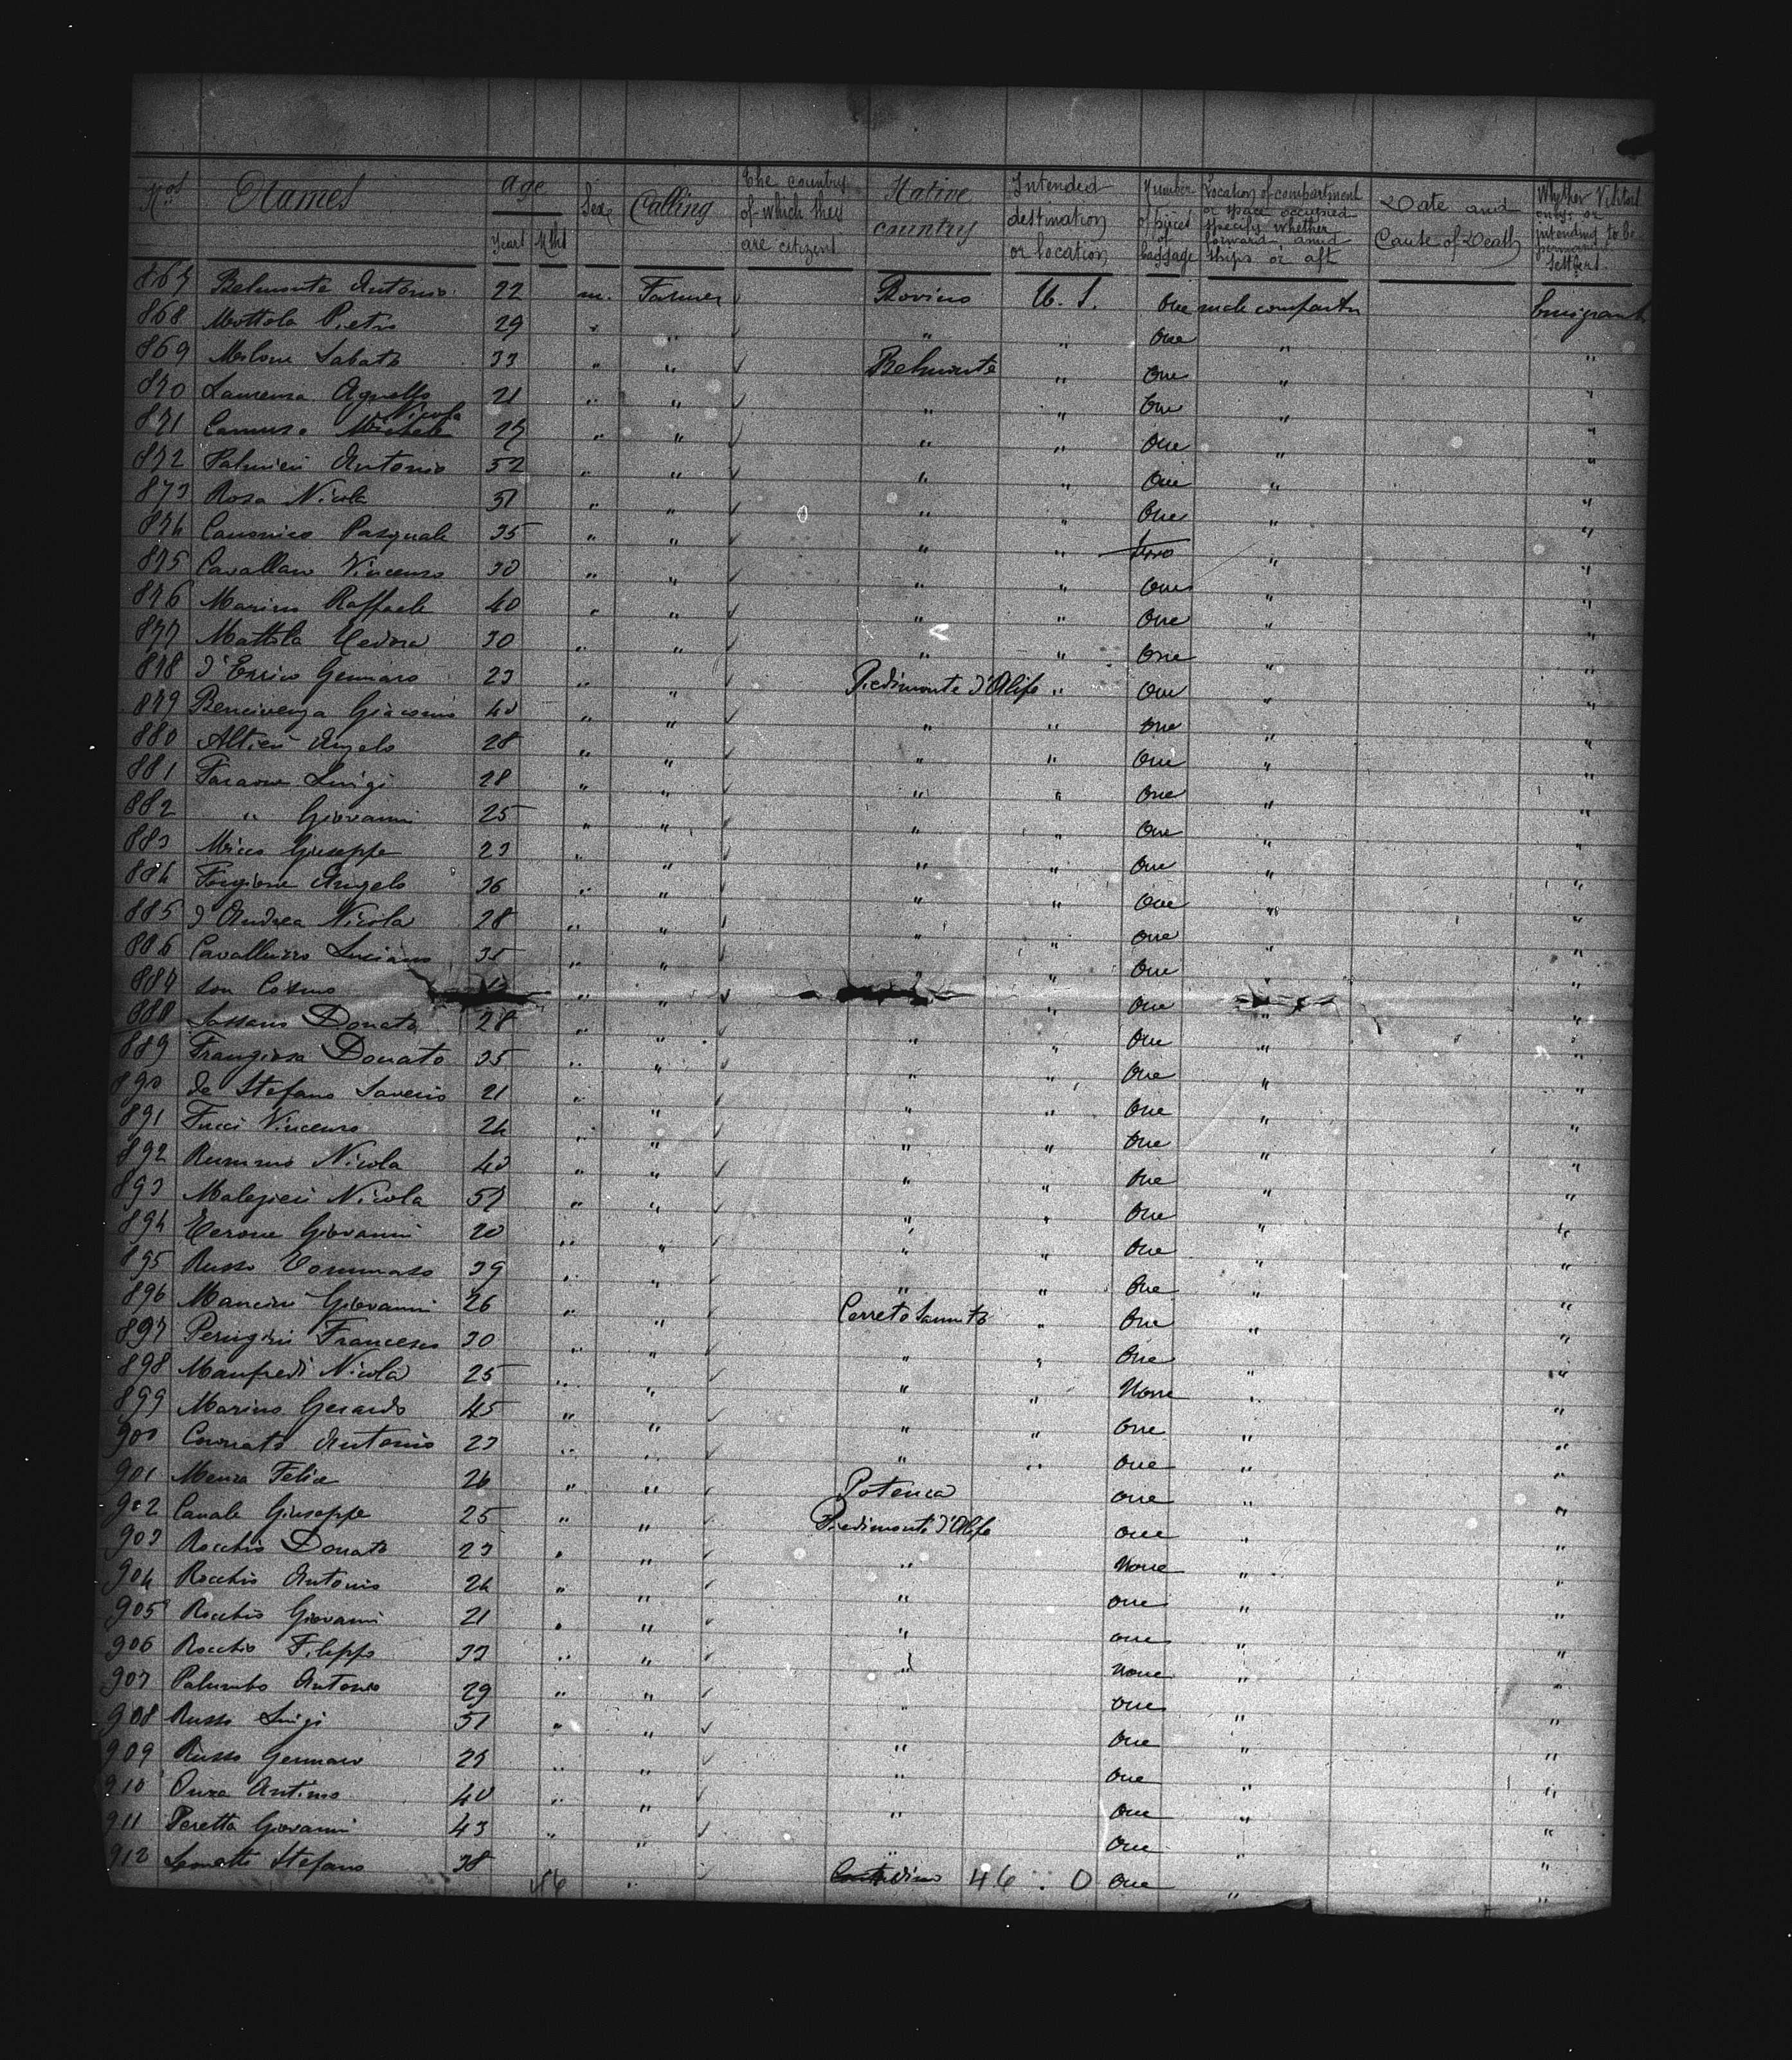 Nos Names Age Years Mths Sex Calling The country of which they are citizent Native country Intended destination or location Number of pieces of baggage Location of compartment or space occupied specifis whether forward, amid ships or aft Date and Cause of Death Whether Visitors only or intending to be permanent Settlers
867 Belmonte Antonio 22 m. Farmer ✓ Bovino U. S. One male compartm Emigrant
868 Mottola Pietro 29 " " ✓ " " One " "
869 Melone Sabato 33 " " ✓ Belmonte " One " "
870 Laurenza Agnello 21 " " ✓ " " One " "
Nicola
871 Camuso Michele 27 " " ✓ " " One " "
872 Palmieri Antonio 52 " " ✓ " " One " "
873 Rosa Nicola 31 " " ✓ " " One " "
874 Canonico Pasquale 35 " " ✓ " " Two " "
875 Cavallaro Vincenzo 30 " " ✓ " " One " "
876 Marino Raffaele 40 " " ✓ " " One " "
877 Mottola 30 " " ✓ " " One " "
878 d'Errico Gennaro 23 " " ✓ Piedimonte d'Alife " One " "
879 Bencivenga Giacomo 40 " " ✓ " " One " "
880 Altieri Angelo 28 " " ✓ " " One " "
881 Faraone Luigi 28 " " ✓ " " One " "
882 " Giovanni 25 " " ✓ " " One " "
883 Micco Giuseppe 23 " " ✓ " " One " "
884 Forgione Angelo 36 " " ✓ " " One " "
885 d'Andrea Nicola 28 " " ✓ " " One " "
886 Cavalluzzo Luciano 35 " " ✓ " One " "
887 son Cosmo " " ✓ " One " "
888 Sassano Donato 28 " " ✓ " " One " "
889 Frangiosa Donato 35 " " ✓ " " One " "
890 de Stefano Saverio 21 " " ✓ " " One " "
891 Fucci Vincenzo 24 " " ✓ " " One " "
892 Rummo Nicola 40 " " ✓ " " One " "
893 Malgieri Nicola 57 " " ✓ " " One " "
894 Cerone Giovanni 20 " " ✓ " " One " "
895 Russo Tommaso 39 " " ✓ " " One " "
896 Mancini Giovanni 26 " " ✓ Cerreto Sannito " One " "
897 Perugini Francesco 30 " " ✓ " " One " "
898 Manfredi Nicola 25 " " ✓ " " None " "
899 Marino Gerardo 45 " " ✓ " " One " "
900 Antonio 23 " " ✓ " " One " "
901 Menza Felice 26 " " ✓ Potenza One " "
902 Canale Giuseppe 25 " " ✓ Piedimonte d'Alife One " "
903 Rocchio Donato 23 " " ✓ " None " "
904 Rocchio Antonio 24 " " ✓ " One " "
905 Rocchio Giovanni 21 " " ✓ " One " "
906 Rocchio Filippo 33 " " ✓ " None " "
907 Palumbo Antonio 29 " " ✓ " One " "
908 Russo Luigi 51 " " ✓ " One " "
909 Russo Gennaro 27 " " ✓ " One " "
910 Antimo 40 " " ✓ " One " "
911 Peretta Giovanni 43 " " ✓ " One " "
912 Stefano 38 " ✓ 46 : 0 One " "